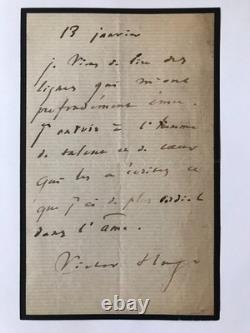 13 janvier
je viens de lire des
lignes qui m'ont
profondément ému.
J'envoie à l'homme
de talent et de cœur
qui les a écrites ce
que j'ai de plus cordial
dans l'âme.
Victor Hugo
© ebay